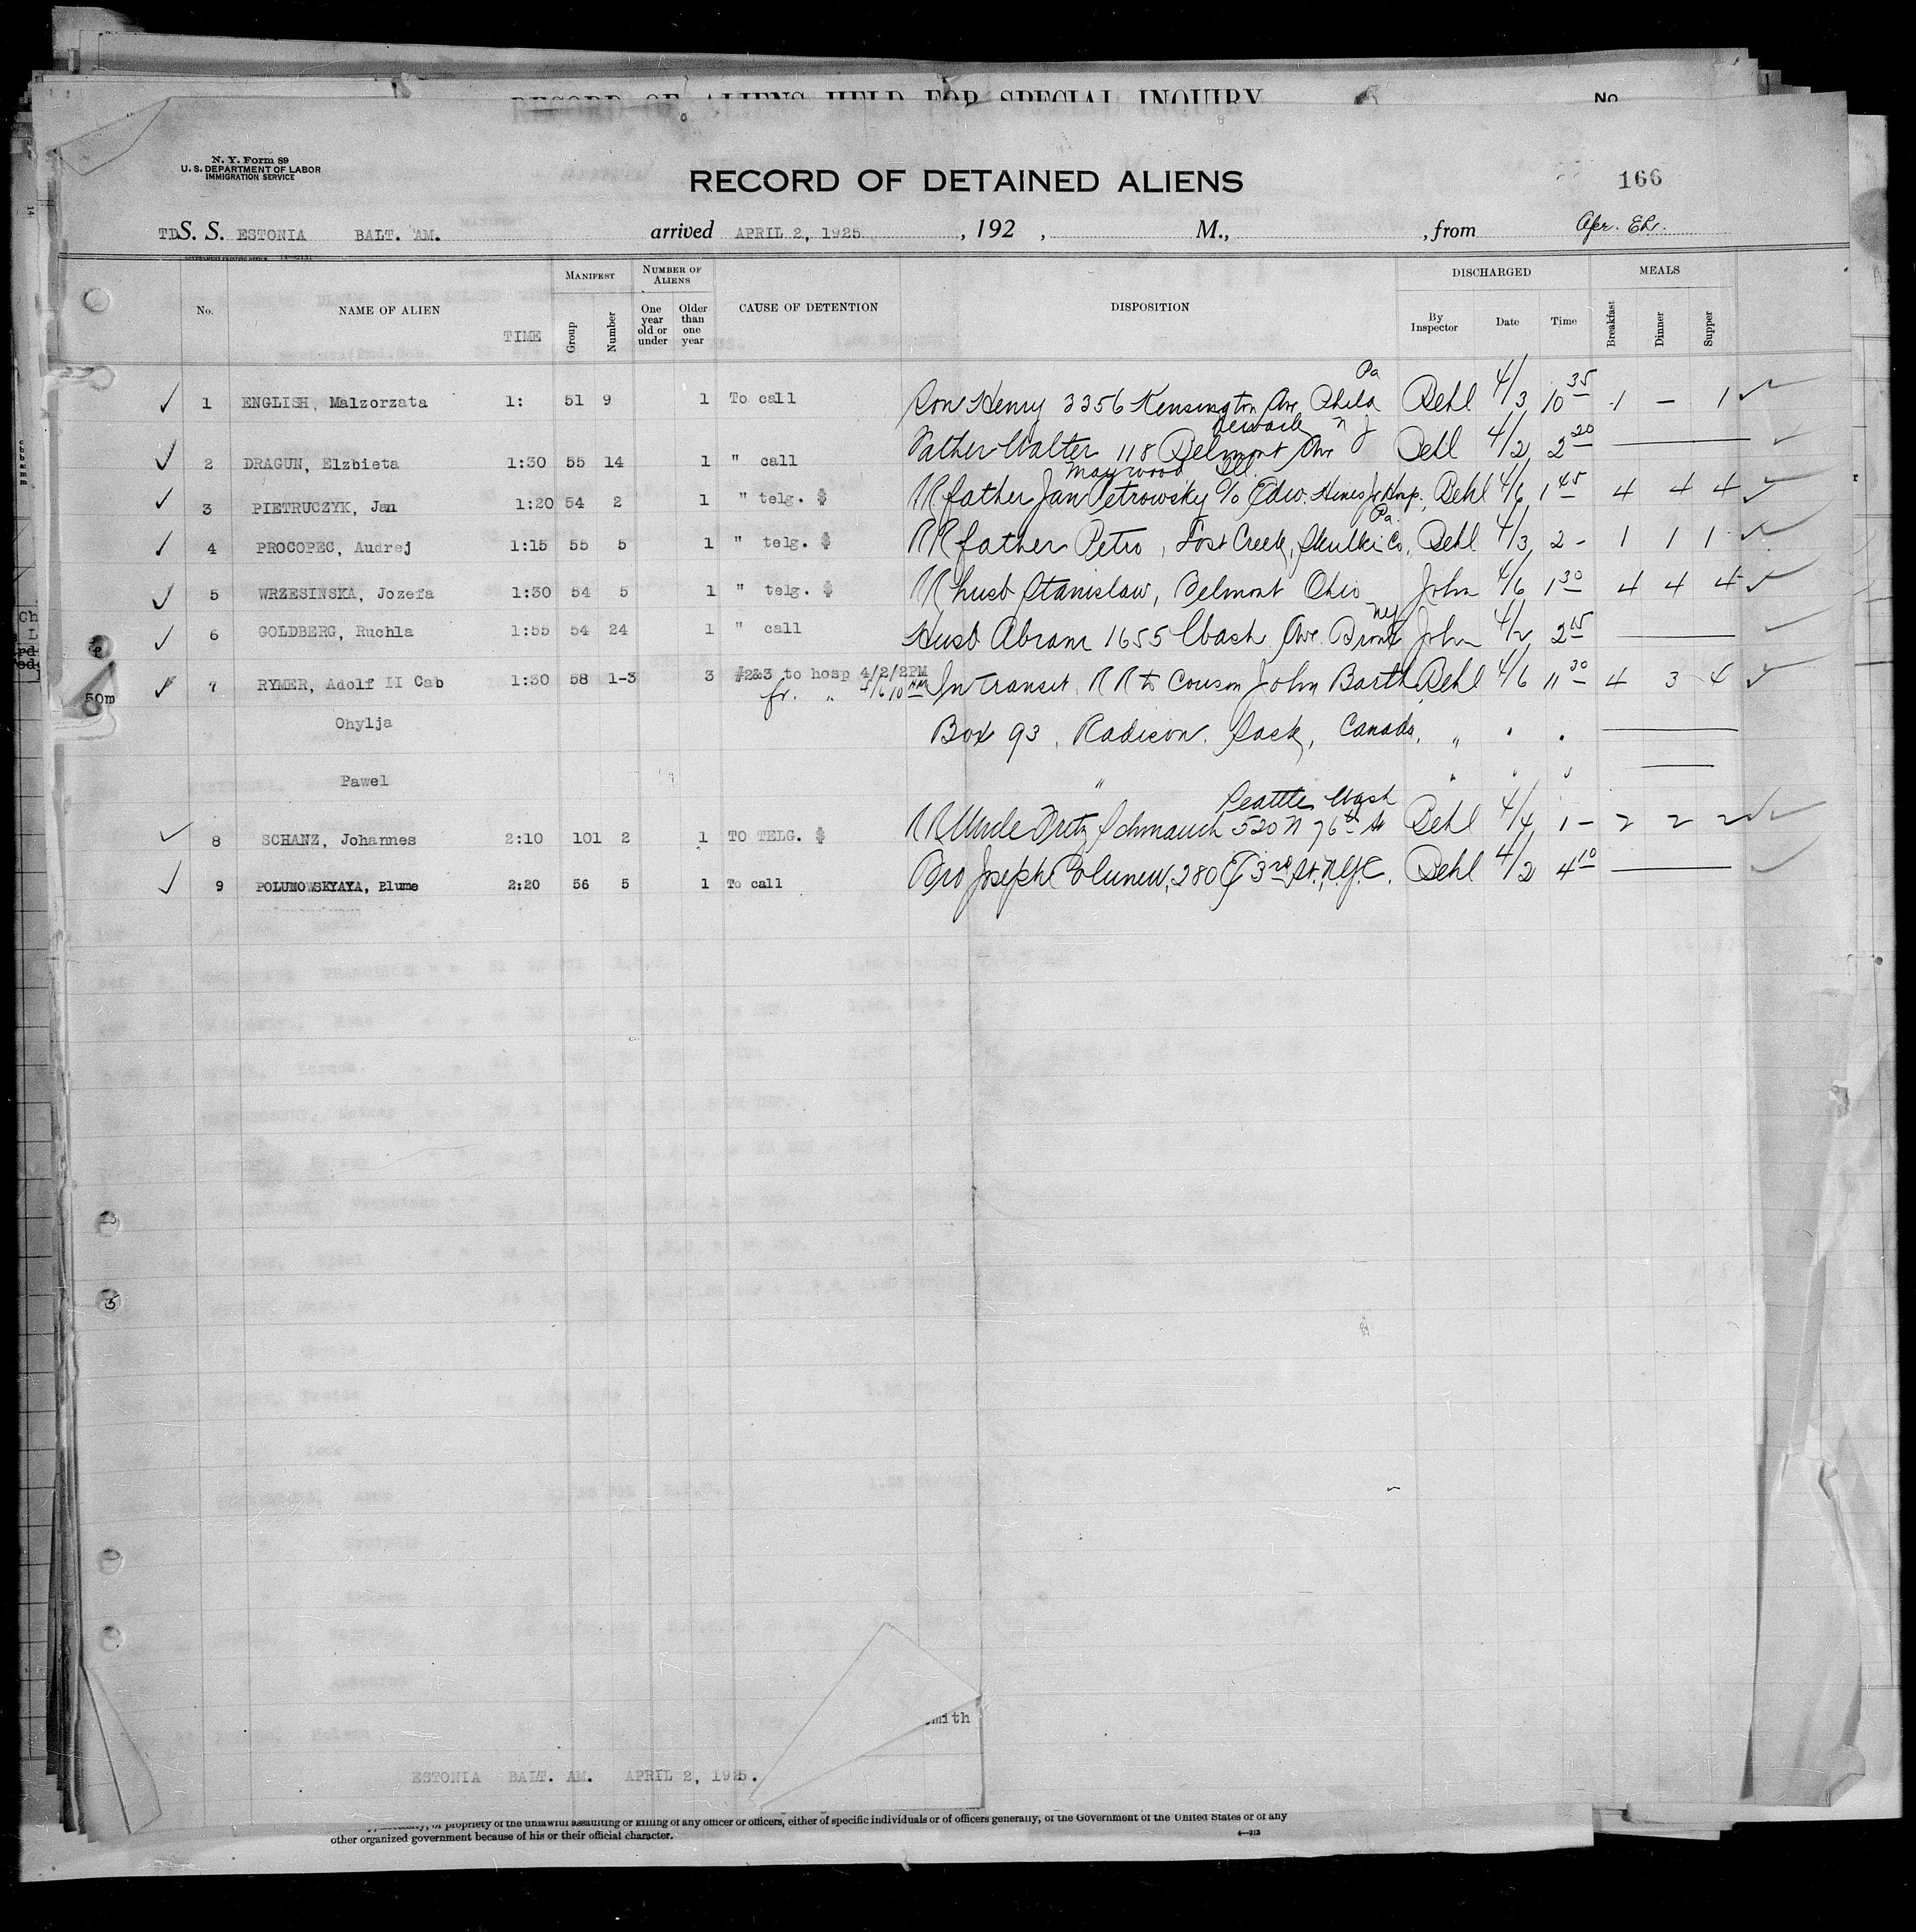 RECORD OF ALIENS HELD FOR SPECIAL INQUIRY No
N. Y. Form 89
U. S. DEPARTMENT OF LABOR
IMMIGRATION SERVICE
RECORD OF DETAINED ALIENS
166
TD S. S. ESTONIA BALT. AM. arrived APRIL 2, 1925 , 192 , M., , from
MANIFEST NUMBER OF ALIENS DISCHARGED MEALS
No. NAME OF ALIEN TIME Group Number One year old or under Older than one year CAUSE OF DETENTION DISPOSITION By Inspector Date Time Breakfast Dinner Supper
Pa
1 ENGLISH, Malzorzata 1: 51 9 1 To call Son Henry 3356 Kensington Ave Phila Behl 4/3 10 35 1 — 1
Newark N J
2 DRAGUN, Elzbieta 1:30 55 14 1 " call Father Walter 118 Belmont Ave Behl 4/2 2 20
Maywood Ill.
3 PIETRUCZYK, Jan 1:20 54 2 1 " telg. $ RR father Jan Petrowsky c/o Edw. Hines Jr Hosp. Behl 4/6 1 45 4 4 4
Pa.
4 PROCOPEC, Audrej 1:15 55 5 1 " telg. $ RR father Petro, Lost Creek, Skulki Co, Behl 4/3 2 - 1 1 1
5 WRZESINSKA, Jozefa 1:30 54 5 1 " telg. $ RR husb Stanislaw, Belmont Ohio John 4/6 1 30 4 4 4
NY
6 GOLDBERG, Ruchla 1:55 54 24 1 " call Husb Abram 1655 Wash. Ave. Bronx John 4/2 2 15
7 RYMER, Adolf II Cab 1:30 58 1-3 3 #2&3 to hosp 4/2/2PM In transit. RR to Cousin John Barth Behl 4/6 11 30 4 3 4
fr. " 4/6 10 AM
50m
Ohylja Box 93, Radison. Sask, Canada, " " "
Pawel " " " "
Seattle Wash
8 SCHANZ, Johannes 2:10 101 2 1 TO TELG. $ RR Uncle Fritz Schmauch 520 N 76th St Behl 4/4 1 - 2 2 2
9 POLUNOWSKYAYA, Blume 2:20 56 5 1 To call Bro Joseph Polunew, 280 E 3rd St. N.Y.C. Behl 4/2 4 10
mith
ESTONIA BALT. AM. APRIL 2, 1925.
or propriety of the unlawful assaulting or killing of any officer or officers, either of specific individuals or of officers generally, of the Government of the United States or of any
other organized government because of his or their official character.